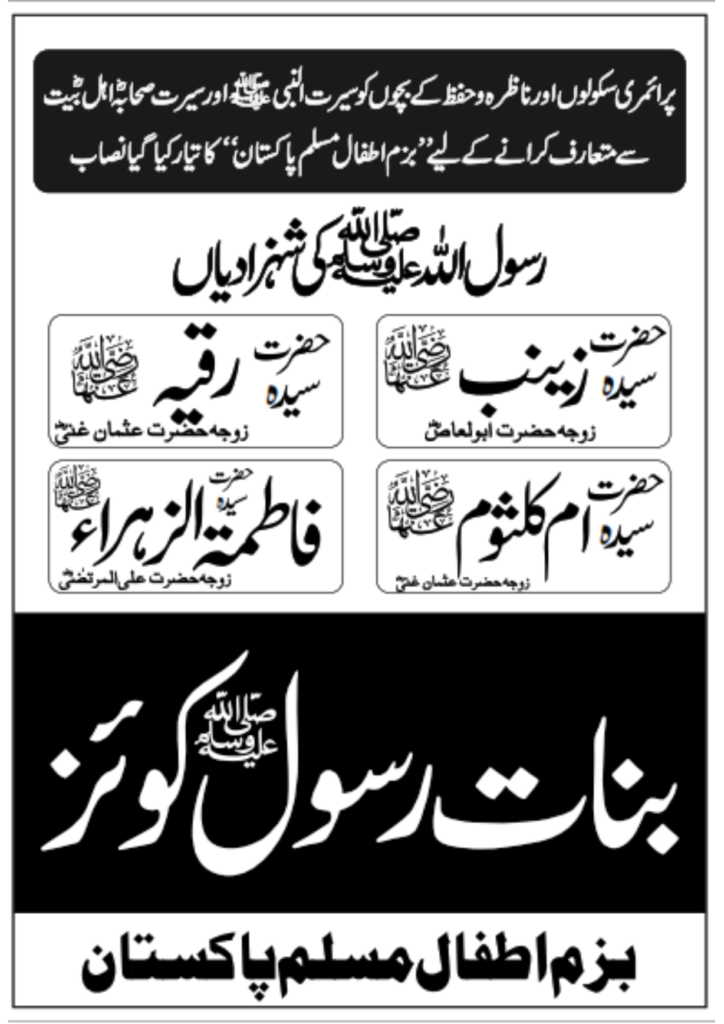 پرائمری سکولوں اور ناظرہ و حفظ کے بچوں کو سیرت النبی ﷺ اور سیرت صحابہؓ اہل بیتؓ
سے متعارف کرانے کے لیے ”بزم اطفال مسلم پاکستان“ کا تیار کیا گیا نصاب
رسول اللہ ﷺ کی شہزادیاں
حضرت سیدہ زینب رضی اللہ عنھا
زوجہ حضرت ابوالعاصؓ
حضرت سیدہ رقیہ رضی اللہ عنھا
زوجہ حضرت عثمان غنیؓ
حضرت سیدہ ام کلثوم رضی اللہ عنھا
زوجہ حضرت عثمان غنیؓ
حضرت سیدہ فاطمۃ الزہراء رضی اللہ عنھا
زوجہ حضرت علی المرتضیٰؓ
بنات رسول ﷺ کوئز
بزم اطفال مسلم پاکستان